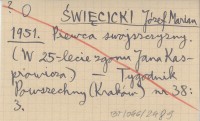 ? O
ŚWIĘCICKI Józef Marian
1951. Piewca swojszczyzny.
(W 25-lecie zgonu Jana Kas-
prowicza) — Tygodnik
Powszechny (Kraków) nr 38:
3.